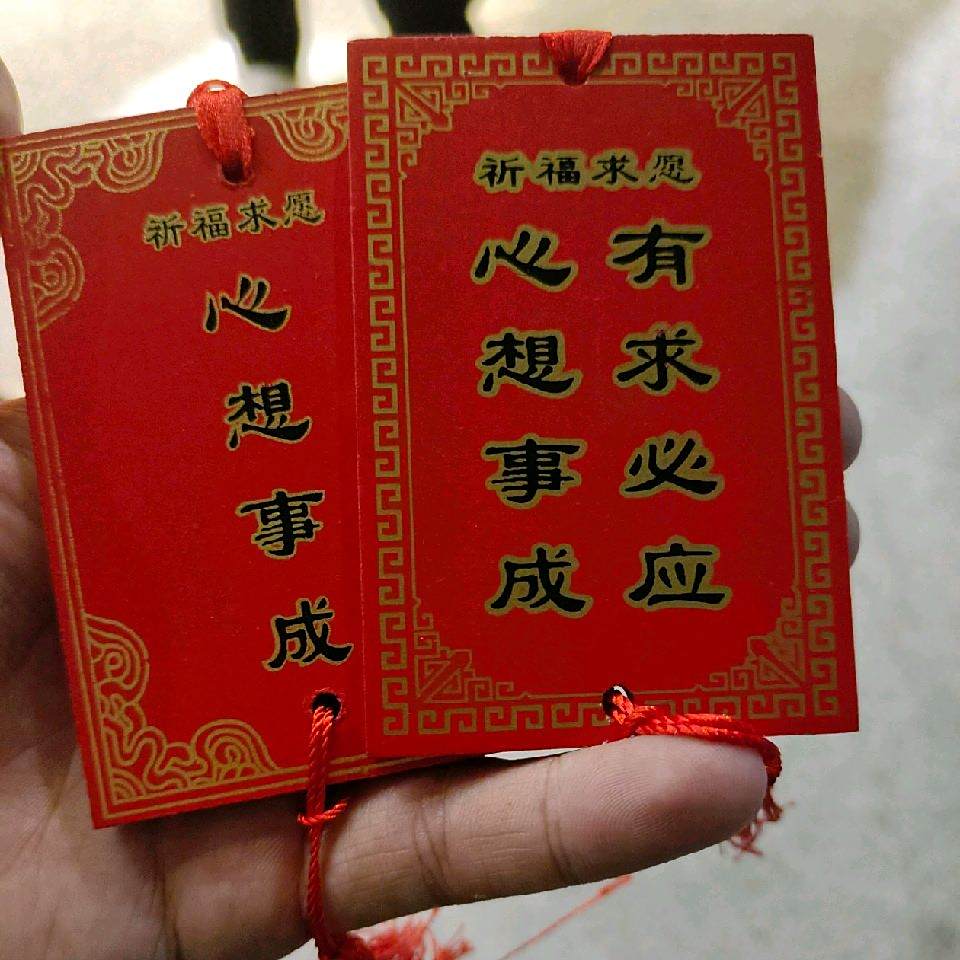 祈福求愿
心想事成
祈福求愿
有求必应
心想事成